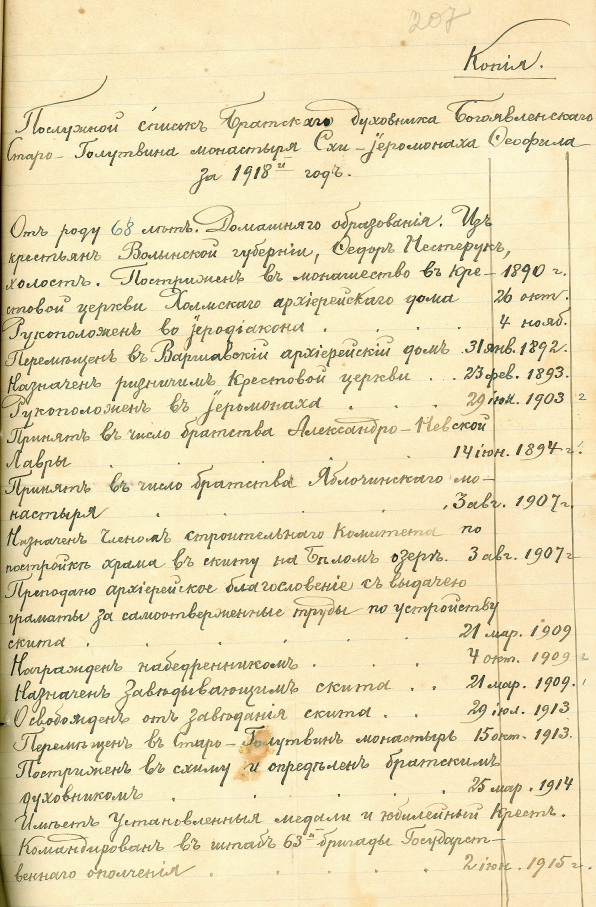 207
Копія.
Послужной списокъ Братскаго духовника Богоявленскаго
Старо-Голутвина монастыря Схи-Іеромонаха Ѳеофила
за 1918й годъ.
Отъ роду 68 лѣтъ. Домашняго образованія. Изъ
крестьян Волынской губерніи, Ѳедоръ Нестерукъ,
холостъ. Постриженъ въ монашество въ Кре- 1890 г.
стовой церкви Холмскаго архіерейскаго дома 26 окт.
Рукоположенъ во Іеродіакони . . . . 4 нояб.
Перемѣщенъ въ Варшавскій архіерейскій домъ 31 янв. 1892.
Назначенъ ризничимъ Крестовой церкви . . 23 фев. 1893.
Рукоположенъ въ Іеромонаха . . . 29 іюл. 1903 г
Принятъ въ число братства Александро-Невской
Лавры . . . . . 14 іюн. 1894 г.
Принятъ въ число братства Яблочинскаго мо-
настыря . . . . . 3 авг. 1907 г.
Назначенъ Членомъ строительнаго Комитета по
постройкѣ храма въ скиту на Бѣломъ озерѣ. 3 авг. 1907 г
Преподано архіерейское благословеніе съ выдачею
граматы за самоотверженные труды по устройству
скита . . . . . . 21 мар. 1909
Награжденъ набедренникомъ . . . 4 окт. 1909 г
Назначенъ Завѣдывающимъ скита . . 21 мар. 1909.
Освобожденъ отъ завѣданія скита . . 29 іюл. 1913
Перемѣщенъ въ Старо-Голутвинъ монастырь 15 окт. 1913.
Постриженъ въ схиму и опредѣленъ братскимъ
духовникомъ . . . . . 25 мар. 1914
Имѣетъ Установленныя медали и юбилейный Крестъ.
Командированъ въ штабъ 63й бригады Государст-
веннаго ополченія . . . . 2 іюн. 1915 г.